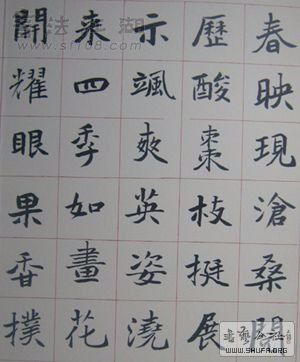 春映現滄桑閱
歷酸棗枝挺展
示颯爽英姿澆
来四季如畫花
開耀眼果香撲
www.sf108.com
WWW.SHUFA.ORG